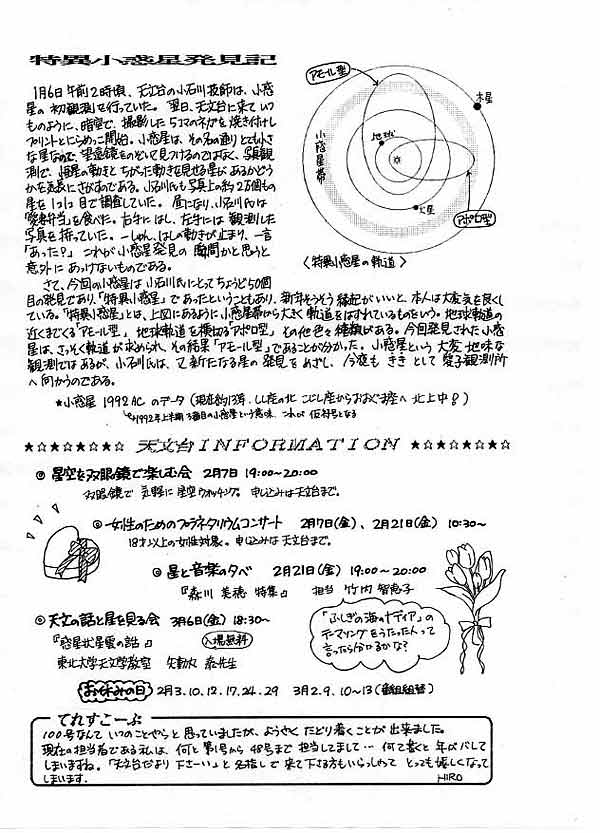 特異小惑星発見記
1月6日午前2時頃、天文台の小石川技師は、小惑
星の初観測を行っていた。翌日、天文台に来ていつ
ものように、暗室で、撮影した5コマのネガを焼き付けし
プリントとにらめっこ開始。小惑星は、その名の通りとても小さ
な星なので、望遠鏡をのぞいて見つけるのではなく、写真観
測で、恒星の動きとちがった動きを見せる星があるかどう
かを
にさがすのである。小石川氏も写真上の約2万個もの
星を1つ1つ目で調査していた。昼になり、小石川氏は
愛妻弁当を食べた。右手にはし、左手には観測した
写真を持っていた。一しゅん、はしの動きが止まり、一言
「あった?」これが小惑星発見の瞬間かと思うと
意外にあっけないものである。
さて、今回の小惑星は小石川氏にとってちょうど50個
目の発見であり、「特異小惑星」であったということもあり、新年そうそう縁起がいいと、本人は大変気を良くし
ている。「特異小惑星」とは、上図にあるように小惑星帯から大きく軌道をはずれているものをいう。地球軌道の
近くまでくる「アモール型」、地球軌道を横切る「アポロ型」その他色々種類がある。今回発見された小惑
星は、さっそく軌道が求められ、その結果「アモール型」であることが分かった。小惑星という大変地味な
観測ではあるが、小石川氏は、又新たなる星の発見をめざし、今夜もききとして愛子観測所
へ向かうのである。
アモール型
木星
小惑星帯
地球
火星
アポロ型
〈特異小惑星の軌道〉
★小惑星 1992ACのデータ(現在約13等、しし座の北 こじし座からおおぐま座へ北上中!)
1992年上半期3番目の小惑星という意味。これが仮符号となる
★☆★☆★☆★☆★☆ 天文台INFORMATION ★☆★☆★☆★☆★☆
◎ 星空を双眼鏡で楽しむ会 2月7日 19:00~20:00
双眼鏡で気軽に星空ウォッチング。申し込みは天文台まで。
◎ 女性のためのプラネタリウムコンサート 2月7日(金)、2月21日(金) 10:30~
18才以上の女性対象。申し込みは天文台まで。
◎ 星と音楽の夕べ 2月21日(金) 19:00~20:00
『森川美穂 特集』 担当 竹内智恵子
◎ 天文の話と星を見る会 3月6日(金) 18:30~
『惑星状星雲の話』 入場無料
東北大学天文学教室
泰先生
「ふしぎの海のナディア」の
テーマソングをうたった人って
言ったら分かるかな?
お休みの日 2月3.10.12.17.24.29 3月2.9.10~13(番組組替)
てれすこーぷ
100号なんていつのことやらと思っていましたが、ようやくたどり着くことが出来ました。
現在の担当者である私は、何と第1号から48号まで担当してまして…何て書くと年がバレて
しまいますね。「天文台だより下さーい」と名指しで来て下さる方もいらっしゃってとっても嬉しくなって
しまいます。 HIRO